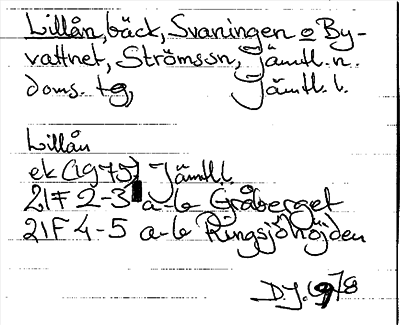 Lillån, bäck, Svaningen o By-
vattnet, Strömssn, Jämtl. n.
doms. tg, Jämtl. l.
Lillån
ek (1975) Jämtl.
21F 2-3 a-b Gråberget
21F 4-5 a-b Ringsjöhöjden
D.J. 1978